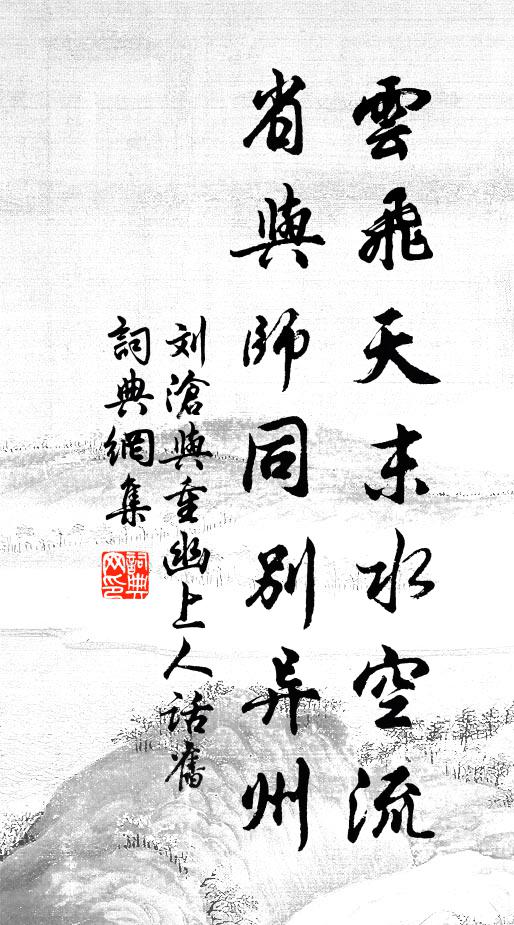 雲飛天末水空流
省與師同別异州
刘滄與重幽上人話舊
詞典網集
詞典
网印